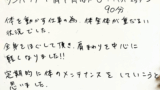 90分
体を動かす仕事の為 体全体が重だるい
状況でした。
全身をほぐして頂き、肩まわりを中心に
軽くなりました!!
定期的に体のメンテナンスをしていこうと
思いました。